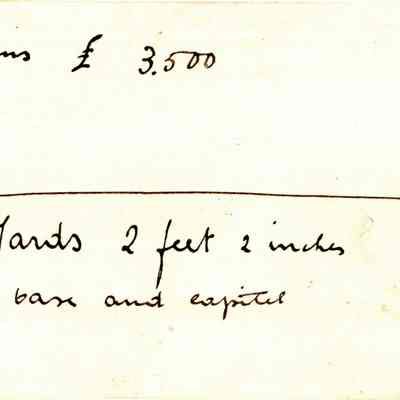 £ 3.500
Yards 2 feet 2 inches
base and capitel